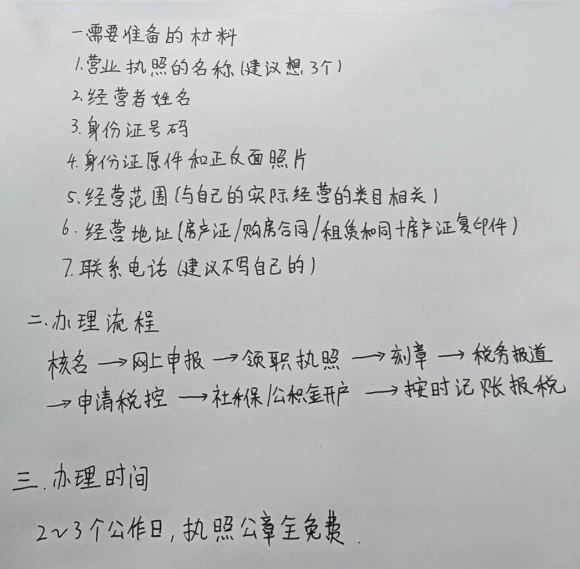 一.需要准备的材料
1.营业执照的名称(建议想3个)
2.经营者姓名
3.身份证号码
4.身份证原件和正反面照片
5.经营范围(与自己的实际经营的类目相关)
6.经营地址(房产证/购房合同/租赁和同+房产证复印件)
7.联系电话(建议不写自己的)
二.办理流程
核名→网上申报→领职执照→刻章→税务报道
→申请税控→社保/公积金开户→按时记账报税
三.办理时间
2~3个公作日,执照公章全免费.